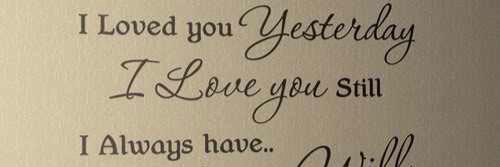 I Loved you Yesterday
I Love you Still
I Always have..